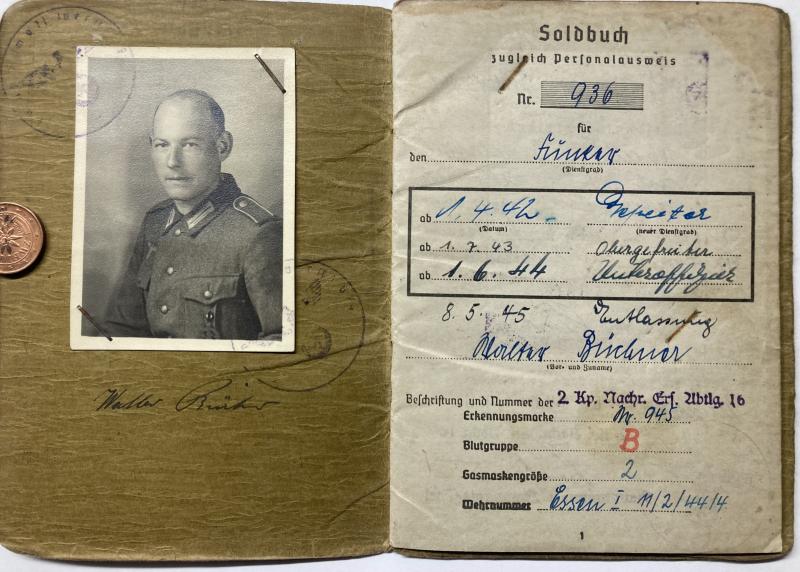 Soldbuch
zugleich Personalausweis
Nr. 936
für
den Funker
(Dienstgrad)
ab 1.4.42 Gefreiter
(Datum) (neuer Dienstgrad)
ab 1.7.43 Obergefreiter
ab 1.6.44 Unteroffizier
8.5.45 Entlassung
Walter Büchner
(Vor- und Zuname)
Beschriftung und Nummer der 2. Kp. Nachr. Ers. Abtlg. 16
Erkennungsmarke Nr. 945
Blutgruppe B
Gasmaskengröße 2
Wehrnummer Essen I 11/2/44/4
1
Walter